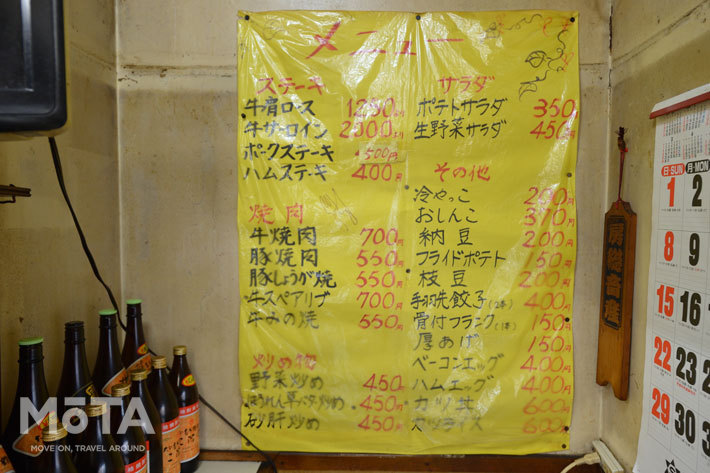 メニュー
ステーキ
牛肩ロース 1250円
牛サーロイン 2000円
ポークステーキ 500円
ハムステーキ 400円
焼肉
牛焼肉 700円
豚焼肉 550円
豚しょうが焼 550円
牛スペアリブ 700円
牛みの焼 550円
炒め物
野菜炒め 450円
ほうれん草バター炒め 450円
砂肝炒め 450円
サラダ
ポテトサラダ 350
生野菜サラダ 450円
その他
冷やっこ 200円
おしんこ 370
納豆 200円
フライドポテト 150円
枝豆 200円
手羽先餃子(2本) 400円
骨付フランク(1本) 150円
厚あげ 150円
ベーコンエッグ 400円
ハムエッグ 400円
カツ丼 600円
カツライス 600円
日・SUN 月・MON
1 2
8 9
15 16
22 23
29 30
MōTA
MOVE ON, TRAVEL AROUND